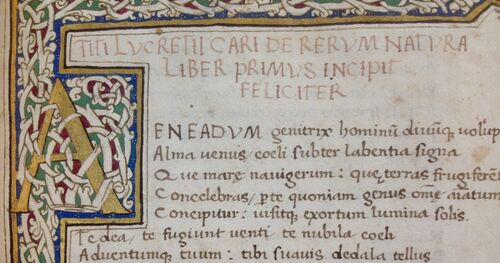 TITI LUCRETII CARI DE RERUM NATURA
LIBER PRIMUS INCIPIT
FELICITER
AENEADUM genitrix hominū divūq; volup
Alma venus, coeli subter labentia signa
Que mare navigerum: que terras frugiferēt
Concelebras, p te quoniam genus omē aīatum
Concipitur: visitq; exortum lumina solis.
Te dea, te fugiunt venti, te nubila coeli
Adventumque tuum: tibi suavis dedala tellus